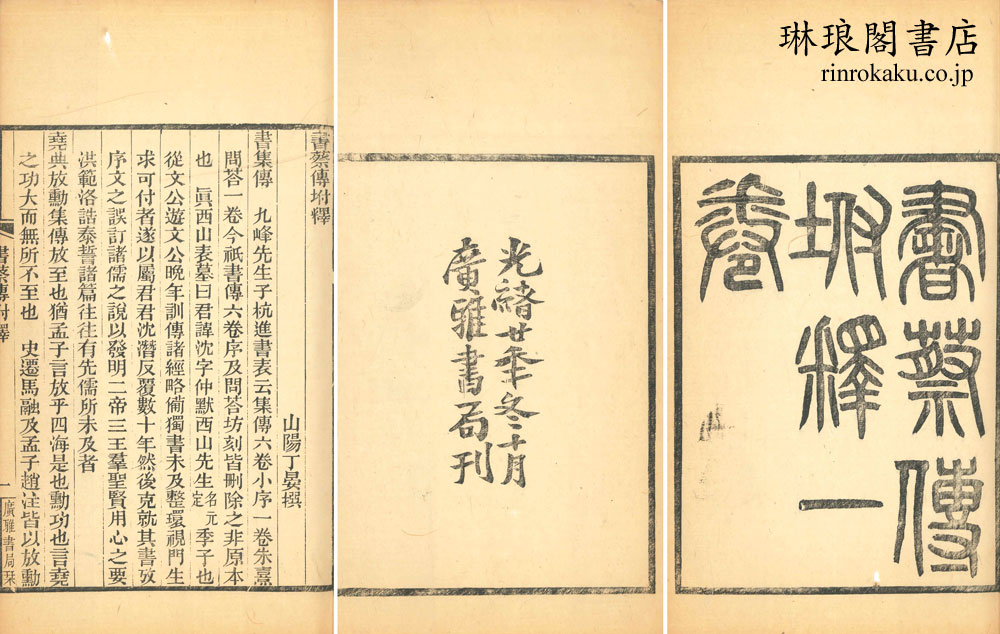 琳琅閣書店
rinrokaku.co.jp
書蔡傳
坿釋一
卷
光緒廿年冬十月
廣雅書局刊
書蔡傳坿釋
山陽丁晏撰
書集傳　九峰先生子杭進書表云集傳六卷小序一卷朱熹
問荅一卷今祇書傳六卷序及問荅坊刻皆刪除之非原本
也　眞西山表墓曰君諱沈字仲默西山先生名元定季子也
從文公遊文公晚年訓傳諸經略備獨書未及整環視門生
求可付者遂以屬君君沈潛反覆數十年然後克就其書攷
序文之誤訂諸儒之說以發明二帝三王羣聖賢用心之要
洪範洛誥泰誓諸篇往往有先儒所未及者
堯典放勳集傳放至也猶孟子言放乎四海是也勳功也言堯
之功大而無所不至也　史遷馬融及孟子趙注皆以放勳
書蔡傳坿釋
一
廣雅書局栞